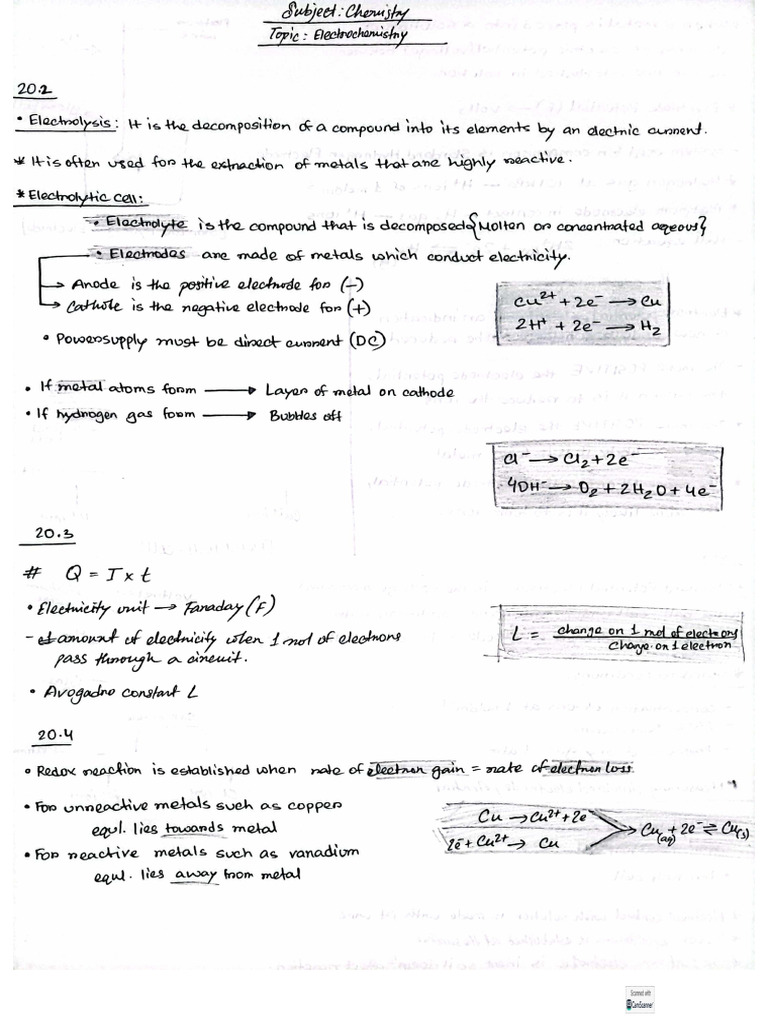 Subject: Chemistry
Topic: Electrochemistry
20.2
• Electrolysis: It is the decomposition of a compound into its elements by an electric current.
* It is often used for the extraction of metals that are highly reactive.
* Electrolytic cell:
• Electrolyte is the compound that is decomposed {Molten or concentrated aqeous}
• Electrodes are made of metals which conduct electricity.
→ Anode is the positive electrode for (−)
→ Cathote is the negative electrode for (+)
Cu²⁺ + 2e⁻ → Cu
2H⁺ + 2e⁻ → H₂
• Powersupply must be direct current (DC)
• If metal atoms form → Layer of metal on cathode
• If hydrogen gas form → Bubbles off
Cl⁻ → Cl₂ + 2e⁻
4OH⁻ → O₂ + 2H₂O + 4e⁻
20.3
# Q = I x t
• Electricity unit → Faraday (F)
- amount of electricity when 1 mol of electrons
pass through a circuit.
L = charge on 1 mol of electrons / charge on 1 electron
• Avogadro constant L
20.4
• Redox reaction is established when rate of electron gain = rate of electron loss.
• For unreactive metals such as copper
equl. lies towards metal
Cu → Cu²⁺ + 2e⁻
2e⁻ + Cu²⁺ → Cu
Cu(aq) + 2e⁻ ⇌ Cu(s)
• For reactive metals such as vanadium
equl. lies away from metal
Scanned with
CamScanner